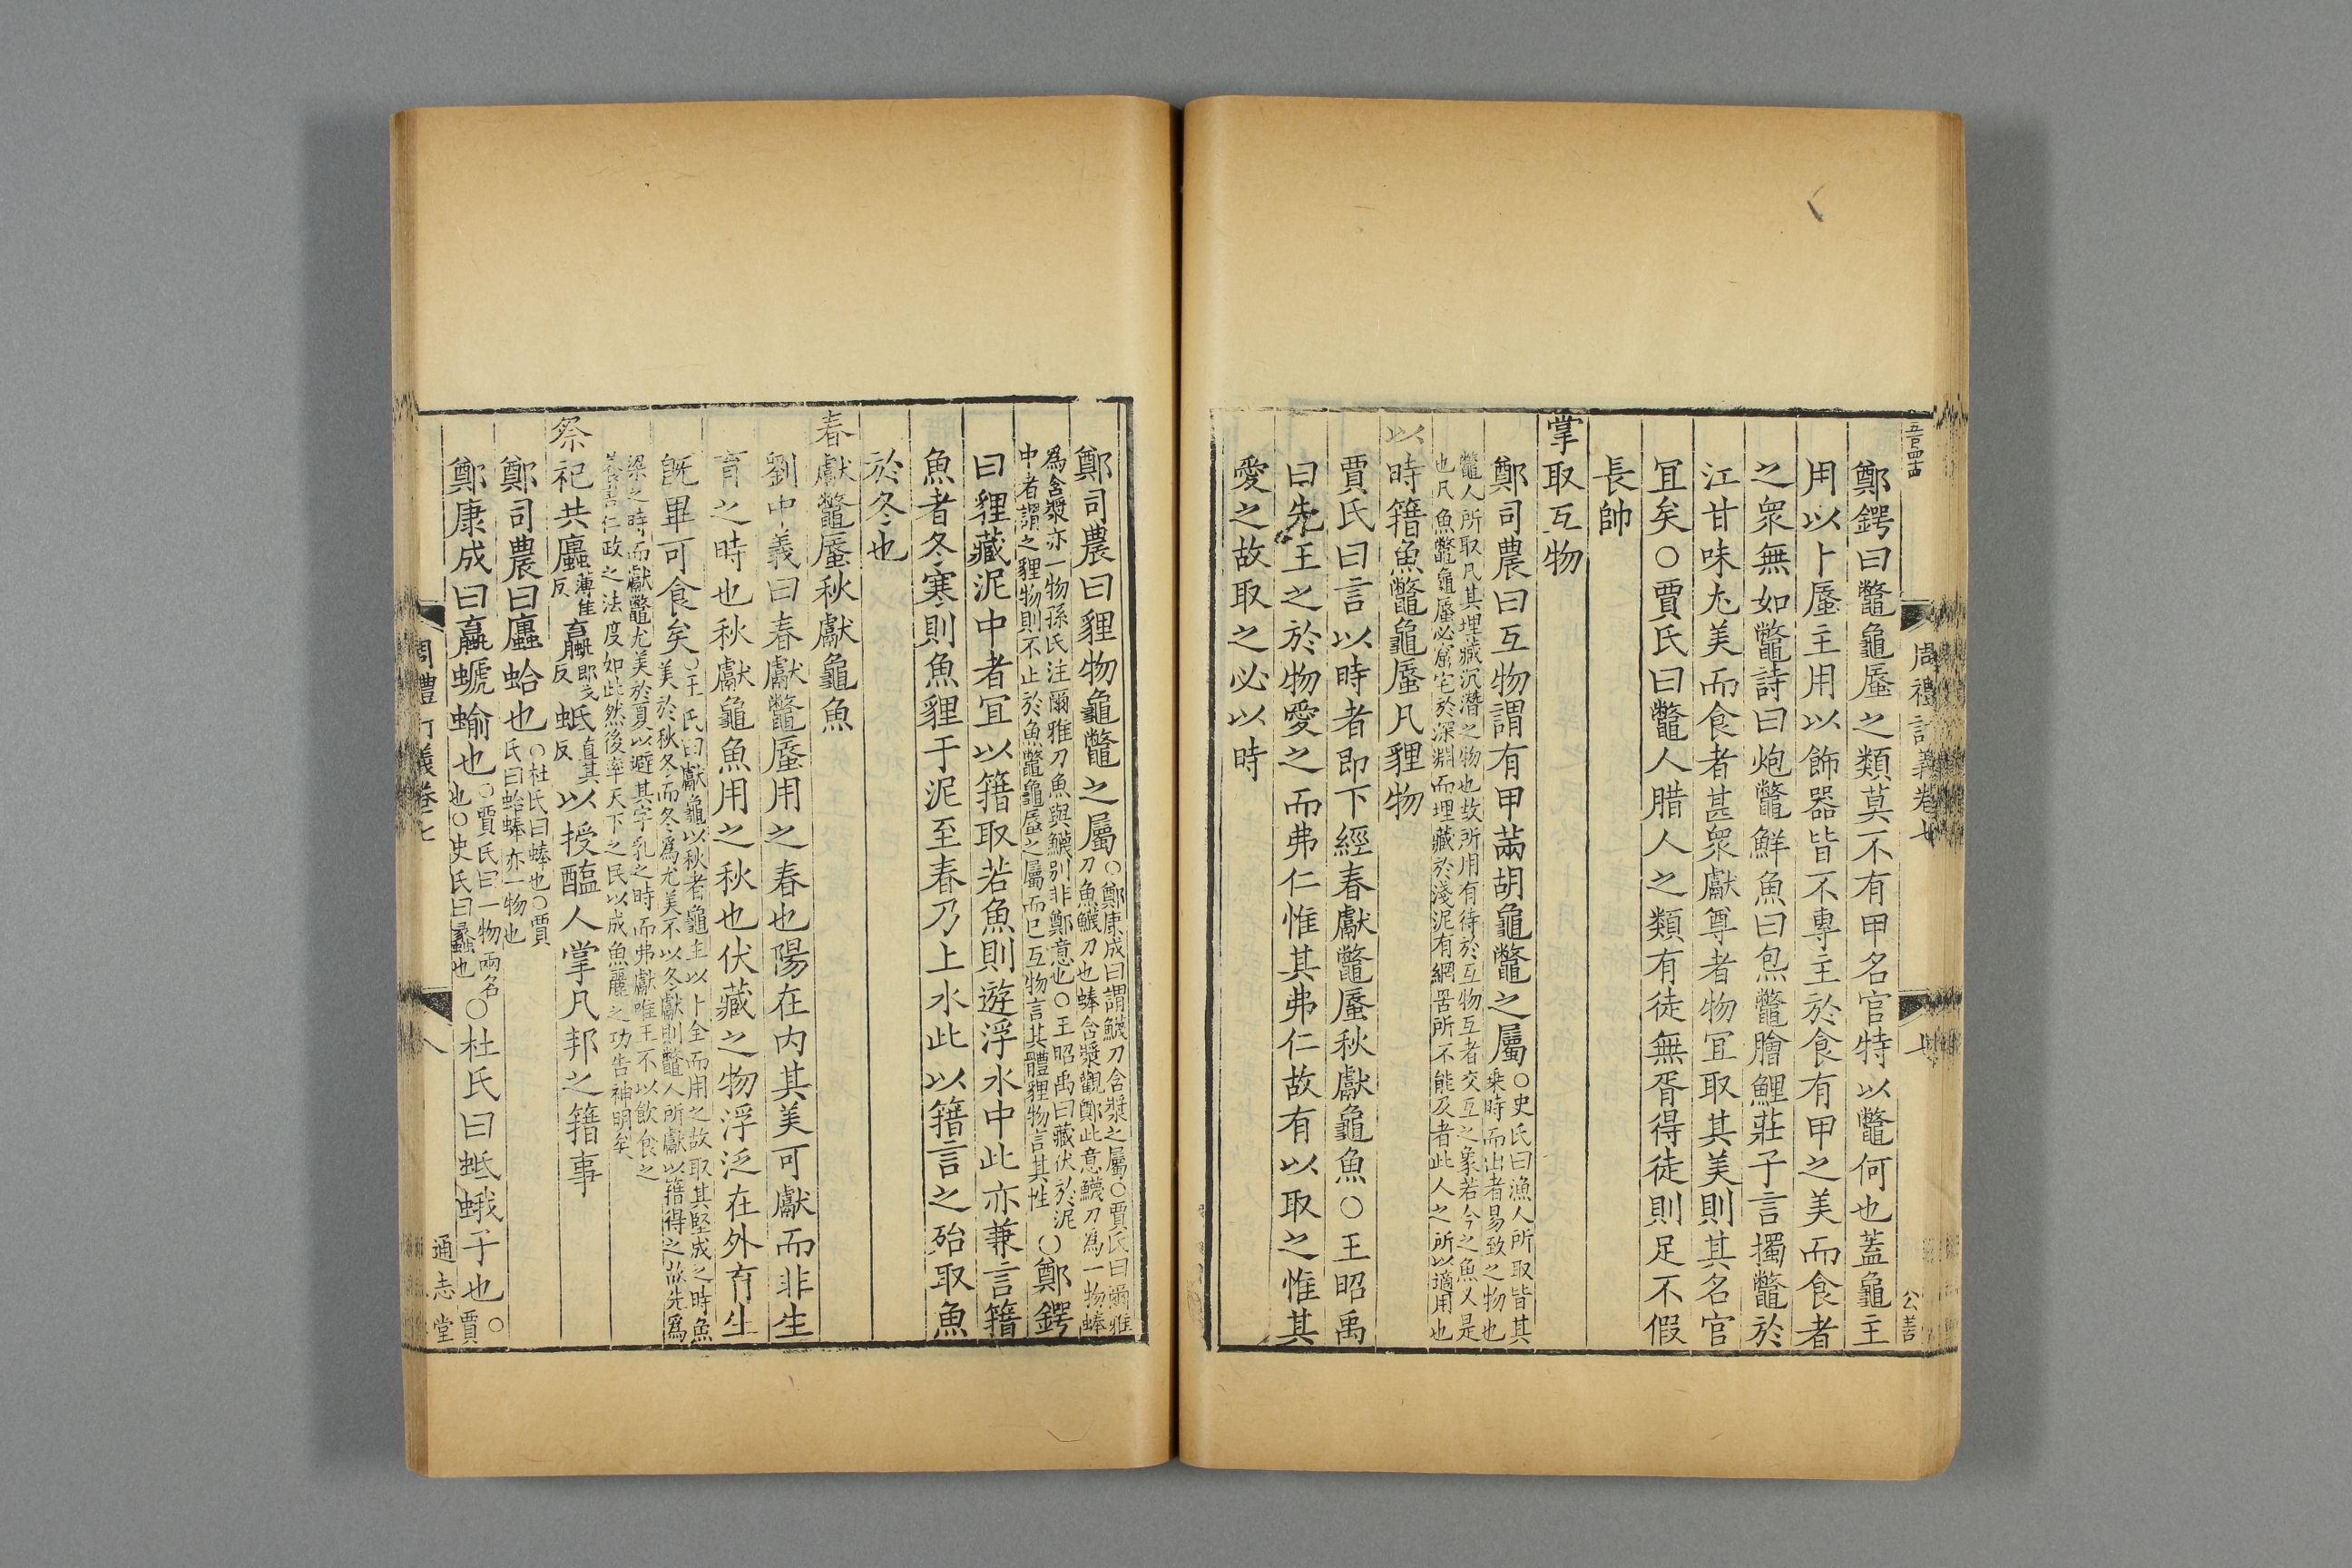 鄭鍔曰鼈龜蜃之類莫不有甲名官特以鼈何也蓋龜主
用以卜蜃主用以飾器皆不專主於食有甲之美而食者
之衆無如鼈詩曰炮鼈鮮魚曰炰鼈膾鯉莊子言擉鼈於
江甘味尤美而食者甚衆獻尊者物宜取其美則其名官
宜矣○賈氏曰鼈人腊人之類有徒無胥得徒則足不假
長帥
掌取互物
鄭司農曰互物謂有甲䓣胡龜鼈之屬○史氏曰漁人所取皆其
乗時而出者易致之物也
鼈人所取凡其埋藏沉潛之物也故所用有待於互物互者交互之象若今之魚乂是
也凡魚鼈龜蜃必窟宅於深淵而埋藏於淺泥有網罟所不能及者此人之所以適用也
以時簎魚鼈龜蜃凡貍物
賈氏曰言以時者即下經春獻鼈蜃秋獻龜魚○王昭禹
曰先王之於物愛之而弗仁惟其弗仁故有以取之惟其
愛之故取之必以時
周禮訂義卷七
公善
鄭司農曰貍物龜鼈之屬○鄭康成曰謂鱴刀含漿之屬○賈氏曰爾雅
刀魚鱴刀也蜯含漿觀鄭此意鱴刀為一物蜯
為含漿亦一物孫氏注爾雅刀魚與鱴别非鄭意也○王昭禹曰藏伏於泥
中者謂之貍物則不止於魚鼈龜蜃之屬而已互物言其體貍物言其性○鄭鍔
曰貍藏泥中者宜以簎取若魚則遊浮水中此亦兼言簎
魚者冬寒則魚貍于泥至春乃上水此以簎言之殆取魚
於冬也
春獻鼈蜃秋獻龜魚
劉中義曰春獻鼈蜃用之春也陽在内其美可獻而非生
育之時也秋獻龜魚用之秋也伏藏之物浮泛在外育生
旣畢可食矣○王氏曰獻龜以秋者龜主以卜全而用之故取其堅成之時魚
美於秋冬而冬爲尤美不以冬獻則鼈人所獻以簎得之故先爲
梁之時而獻鼈尤美於夏以避其字乳之時而弗獻唯王不以飲食之
仁政之法度如此然後率天下之民以成魚麗之功告神明矣
祭祀共蠯薄佳反蠃郎戈反蚳直其反以授醢人掌凡邦之簎事
鄭司農曰蠯蛤也○杜氏曰蜯也○賈
氏曰蛤蜯亦一物也
鄭康成曰蠃螔蝓也○賈氏曰一物兩名
也○史氏曰蠡也○杜氏曰蚳蛾子也○賈
周禮訂義卷七
八
通志堂